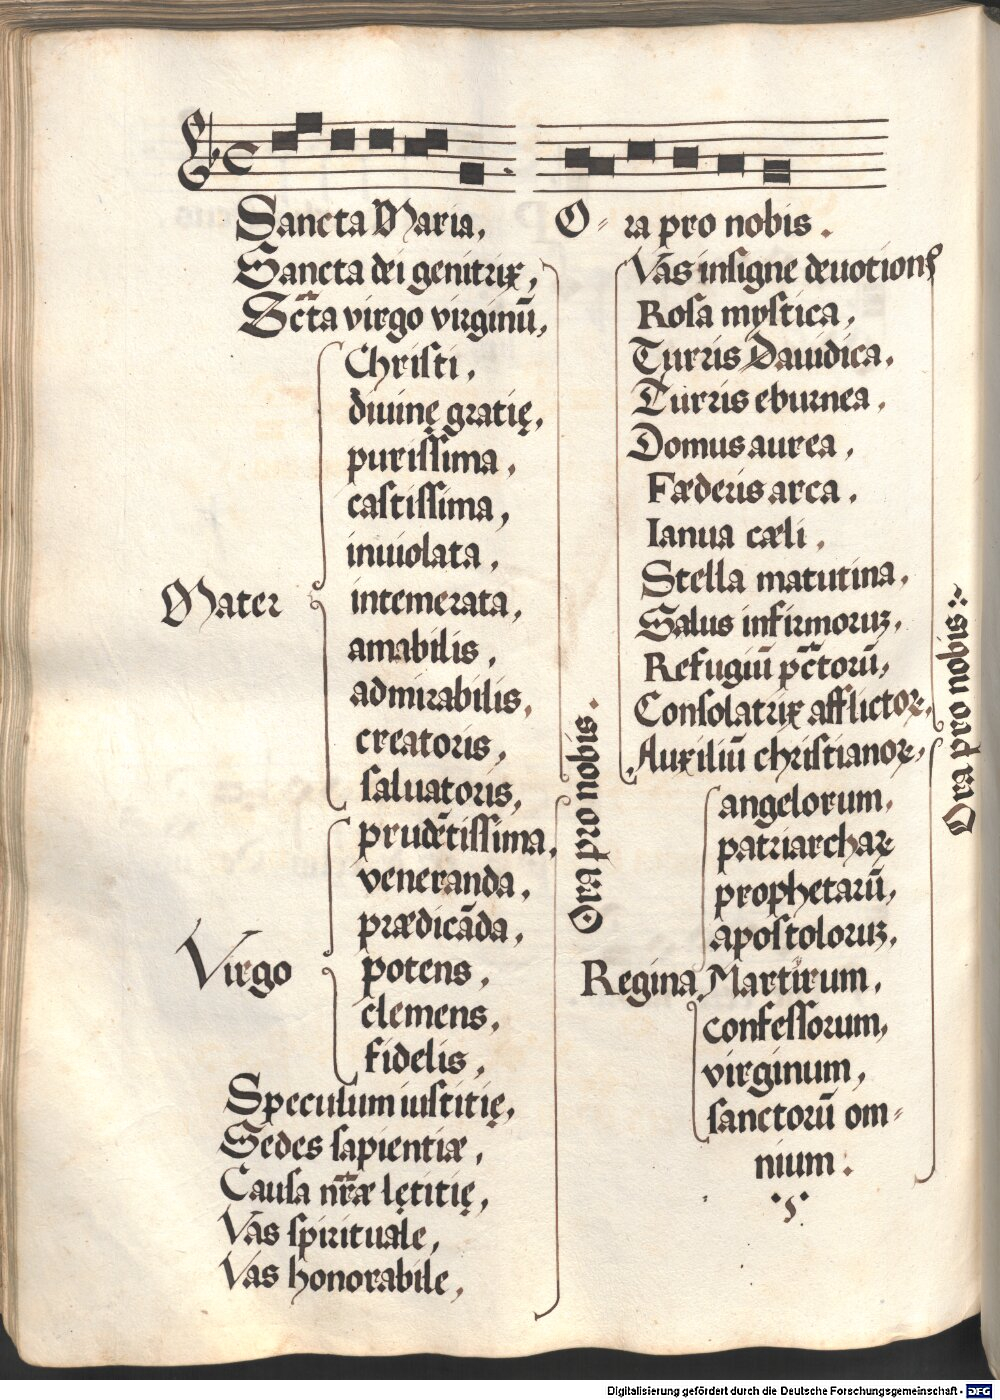 Sancta Maria,
Sancta dei genitrix,
Sc̄ta virgo virginū,
Christi,
diuinę gratię,
purissima,
castissima,
inuiolata,
Mater
intemerata,
amabilis,
admirabilis,
creatoris,
saluatoris,
prudētissima,
veneranda,
prædicāda,
Virgo
potens,
clemens,
fidelis,
Speculum iustitię,
Sedes sapientiæ,
Causa nr̄æ lętitię,
Vas spirituale,
Vas honorabile,
Ora pro nobis.
O-ra pro nobis.
Vas insigne deuotionis
Rosa mystica,
Turris Dauidica,
Turris eburnea,
Domus aurea,
Fæderis arca,
Ianua cæli,
Stella matutina,
Salus infirmoruꝫ,
Refugiū pc̄torū,
Consolatrix afflictoꝝ,
Auxiliū christianoꝝ,
angelorum,
patriarchaꝝ
prophetarū,
apostoloruꝫ,
Regina Martirum,
confessorum,
virginum,
sanctorū om-
nium.
Ora pro nobis.
Digitalisierung gefördert durch die Deutsche Forschungsgemeinschaft - DFG